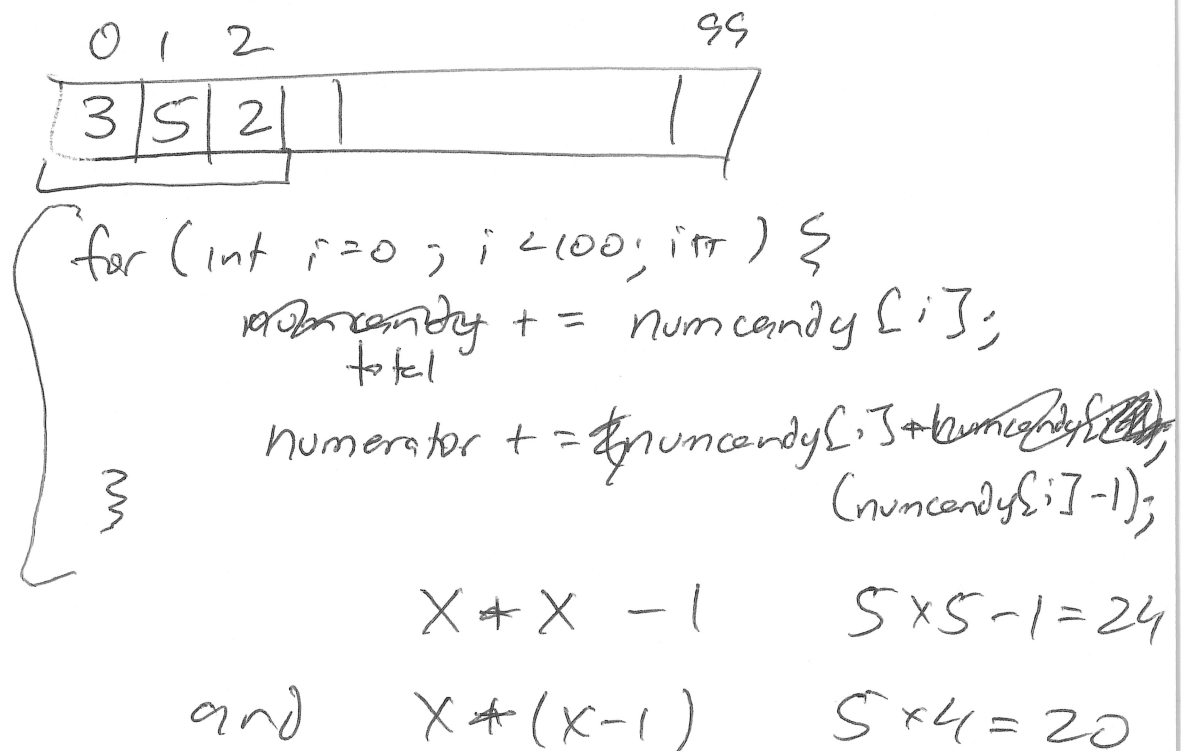 0 1 2 99
3 5 2
for (int i=0; i<100; i++) {
total += numcandy[i];
numerator += numcandy[i]*
(numcandy[i]-1);
}
X * X - 1 5x5-1=24
and X * (X-1) 5x4=20